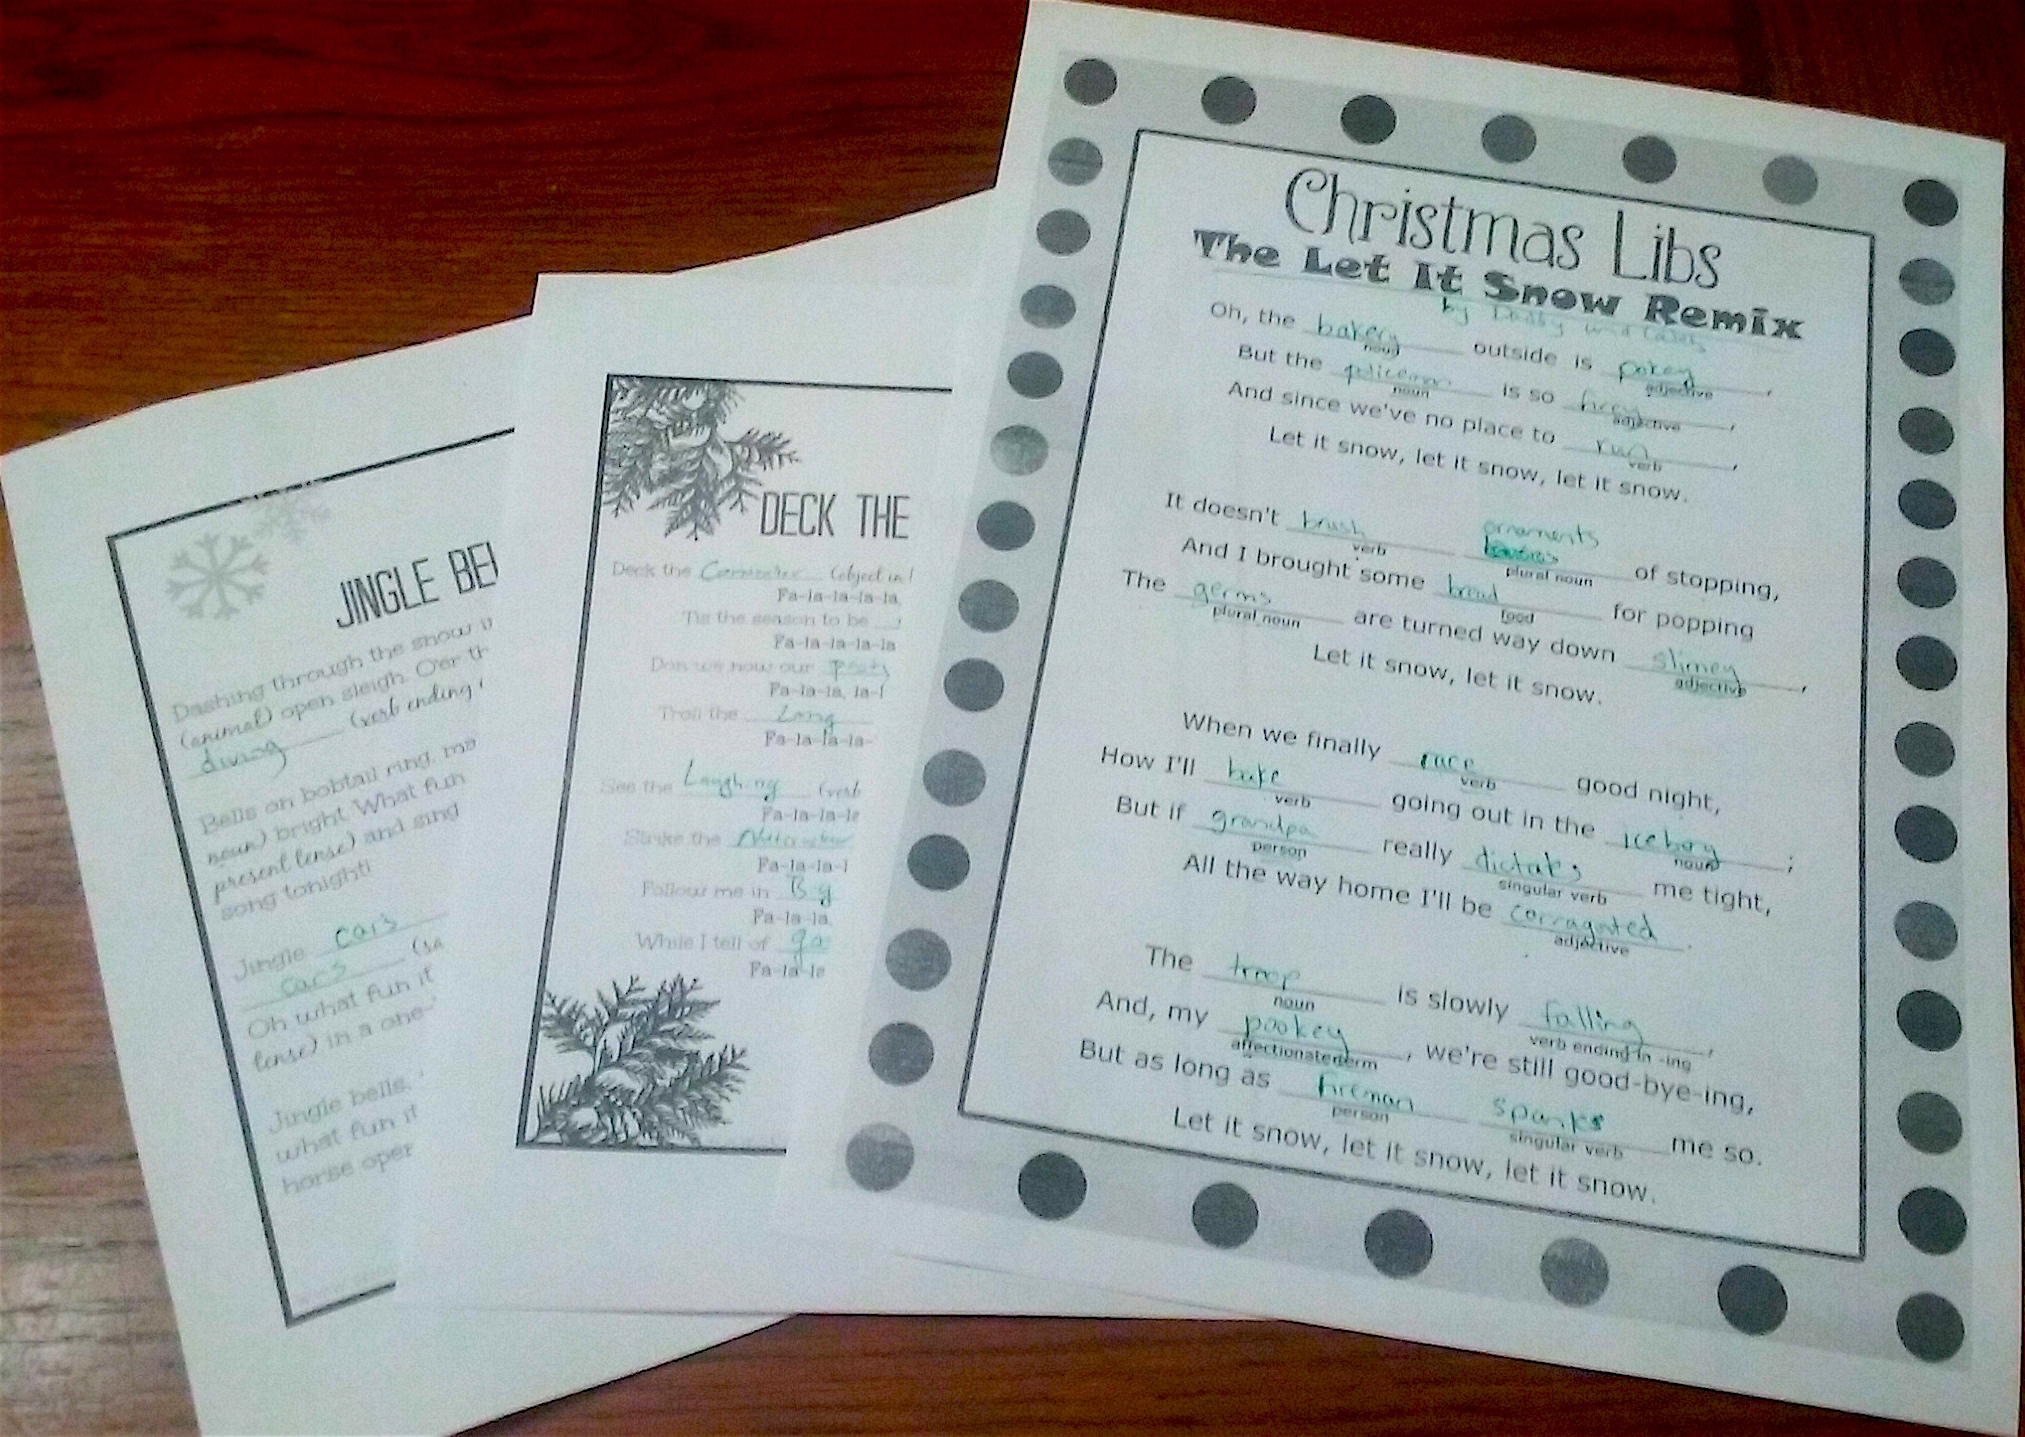 JINGLE BEL
Dashing through the snow i
(animal) open sleigh. O'er th
diving (verb ending i
Bells on bobtail ring, ma
noun) bright. What fun
present tense) and sing
song tonight!
Jingle cars
cars (sa
Oh what fun it
tense) in a one-
Jingle bells,
what fun it
horse oper
DECK THE
Deck the (object in
Fa-la-la-la-la,
'Tis the season to be
Fa-la-la-la-la
Don we now our
Fa-la-la, la-l
Troll the Long
Fa-la-la-la-
See the Laughing (verb
Fa-la-la-la
Strike the
Fa-la-la-l
Follow me in
Fa-la-la,
While I tell of
Fa-la-la
Christmas Libs
The Let It Snow Remix
by Daddy and Caleb
Oh, the bakery outside is pokey,
noun adjective
But the policeman is so firey,
noun adjective
And since we've no place to run,
verb
Let it snow, let it snow, let it snow.
ornaments
It doesn't brush of stopping,
verb plural noun
And I brought some bread for popping
food
The germs are turned way down slimey,
plural noun adjective
Let it snow, let it snow.
When we finally race good night,
verb
How I'll bake going out in the icebox;
verb noun
But if grandpa really dictats me tight,
person singular verb
All the way home I'll be corragated.
adjective
The troop is slowly falling,
noun verb ending in -ing
And, my pookey, we're still good-bye-ing,
affectionate term
But as long as fireman spanks me so.
person singular verb
Let it snow, let it snow, let it snow.